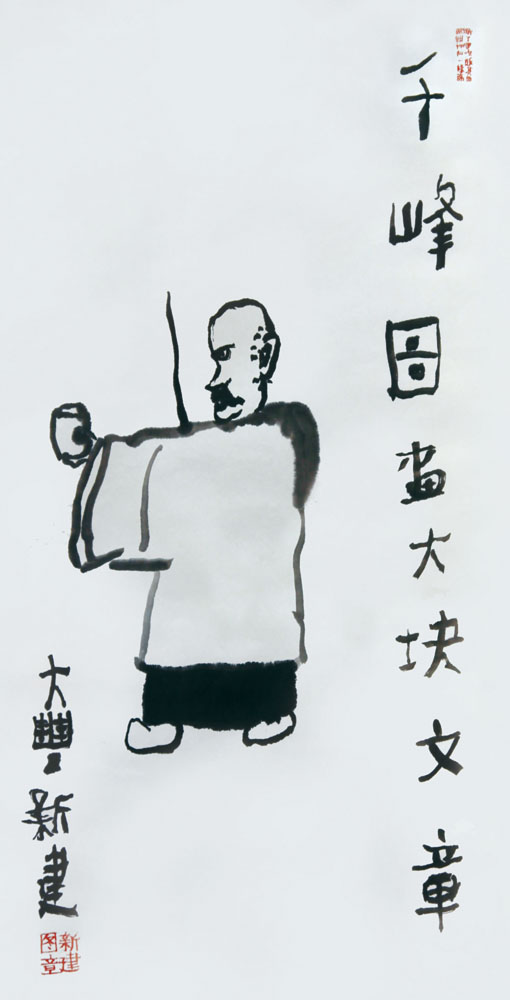 千峰圖畫大块文章
大豐新建
新建
图章